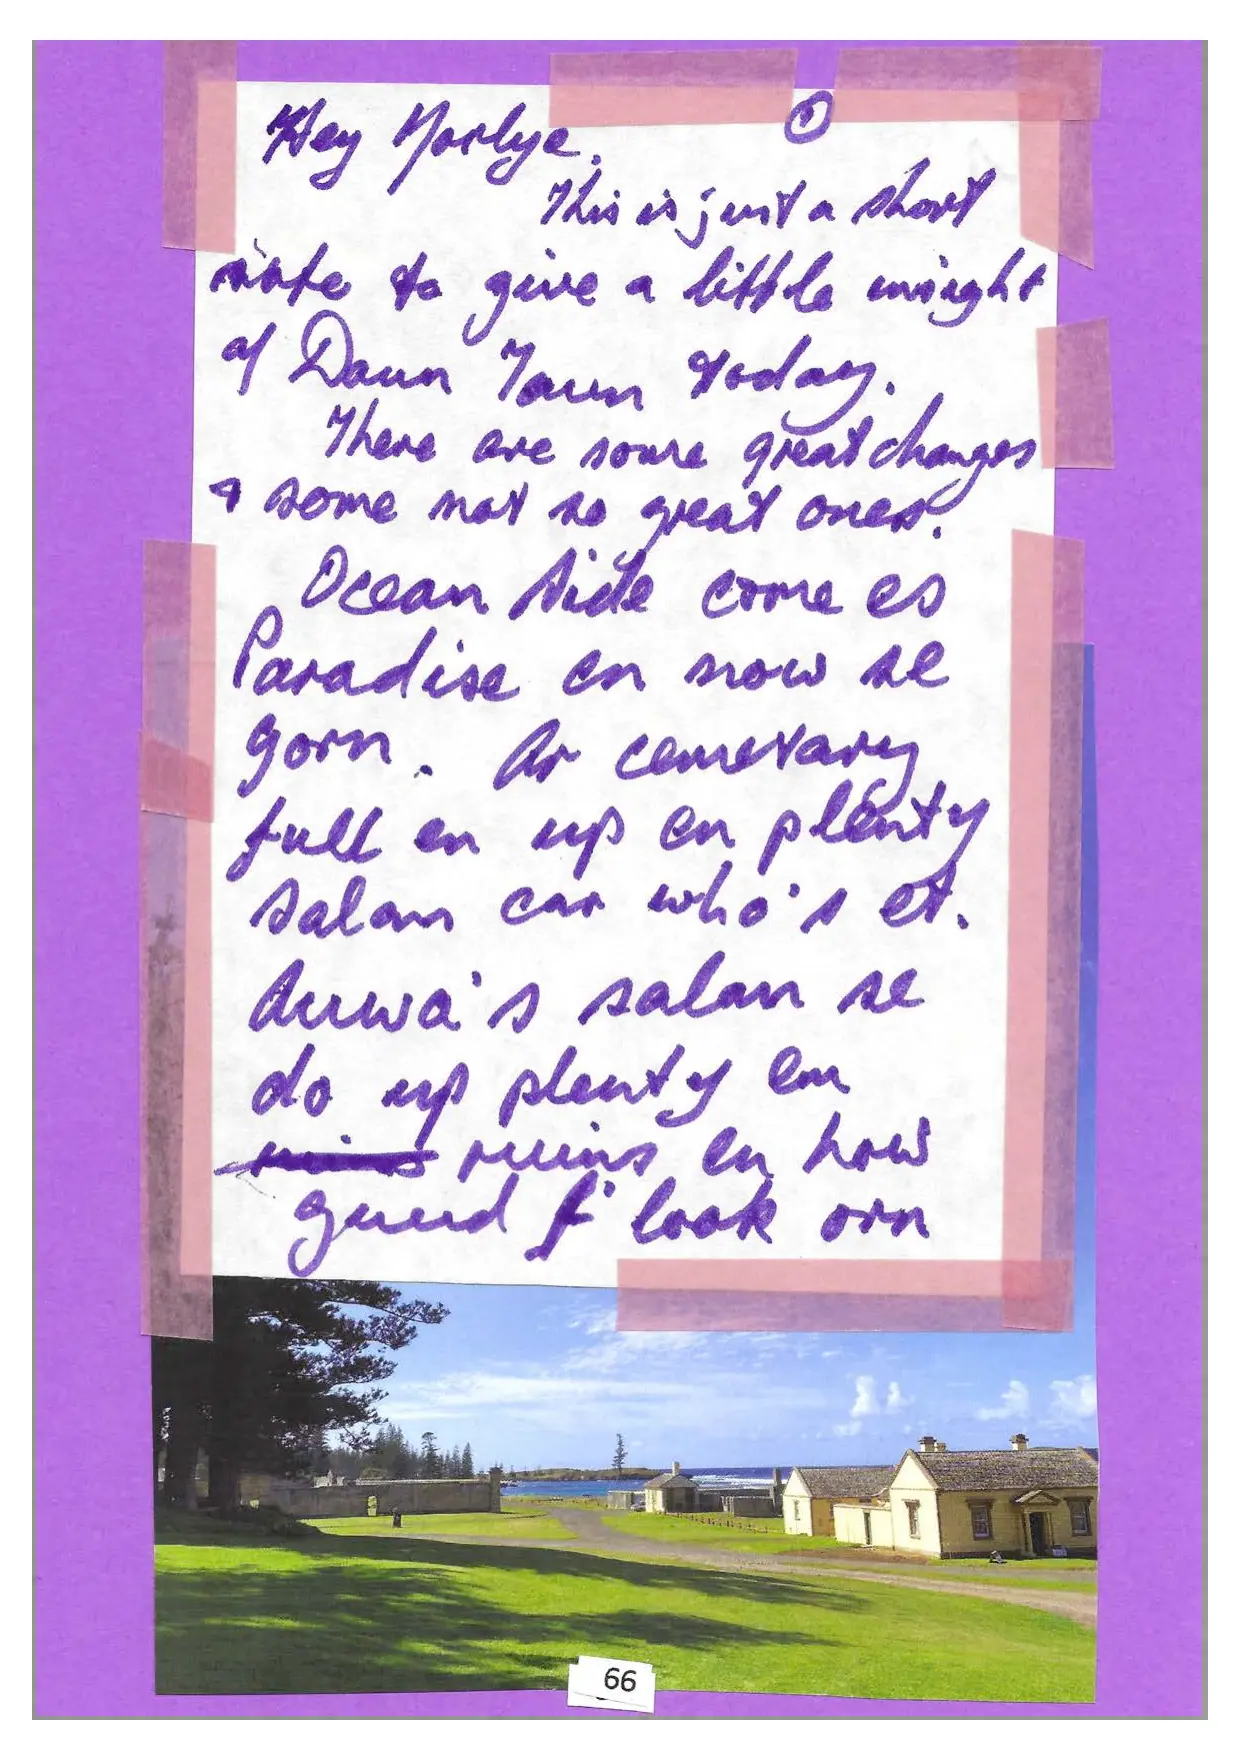 Hey Yorlye. ①
This is just a short
note to give a little insight
of Daun Taun today.
There are some great changes
& some not so great ones.
Ocean Side come es
Paradise en now se
gorn. Ar cemetary
full en up en plenty
salan car who's et.
Auwa's salan se
do up plenty em
ruins en how
guud f' look orn
66